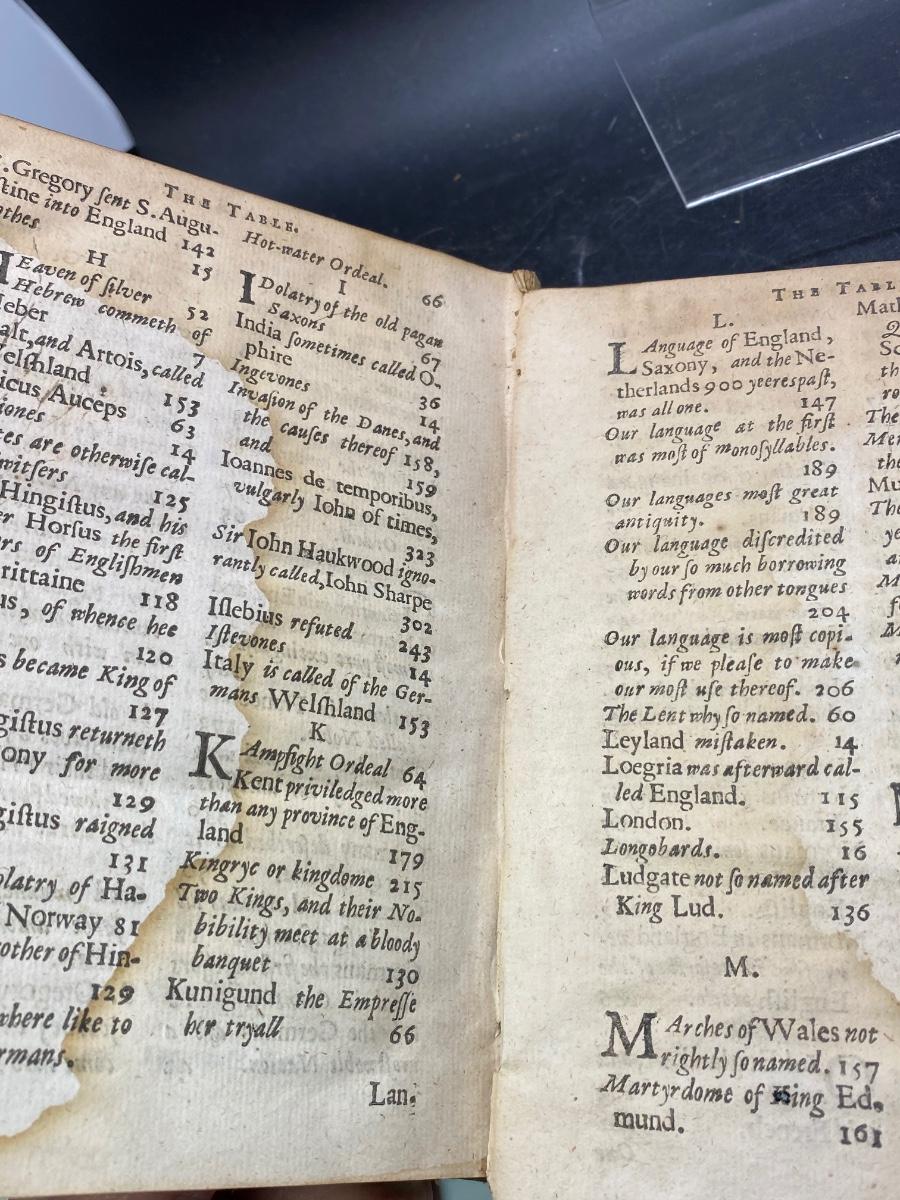 THE TABLE.
. Gregory ſent S. Augu-
ſtine into England 142
othes 15
H
Eaven of ſilver 52
Hebrew commeth of
eber 7
alt, and Artois, called
elſhland 153
icus Auceps 63
iones 14
es are otherwiſe cal-
witſers 125
Hingiſtus, and his
er Horſus the firſt
rs of Engliſhmen
rittaine 118
us, of whence hee
120
s became King of
127
giſtus returneth
ony for more
129
giſtus raigned
131
olatry of Ha-
Norway 81
rother of Hin-
129
where like to
rmans.
Hot-water Ordeal. 66
I
IDolatry of the old pagan
Saxons 67
India ſometimes called O-
phire 36
Ingevones 14
Invaſion of the Danes, and
the cauſes thereof 158,
and 159
Ioannes de temporibus,
vulgarly Iohn of times,
323
Sir Iohn Haukwood igno-
rantly called, Iohn Sharpe
302
Iſlebius refuted 243
Iſtevones 14
Italy is called of the Ger-
mans Welſhland 153
K
KAmpfight Ordeal 64
Kent priviledged more
than any province of Eng-
land 179
Kingryc or kingdome 215
Two Kings, and their No-
bibility meet at a bloody
banquet 130
Kunigund the Empreſſe
her tryall 66
Lan-
THE TABL
L.
LAnguage of England,
Saxony, and the Ne-
therlands 900 yeeres paſt,
was all one. 147
Our language at the firſt
was moſt of monoſyllables.
189
Our languages moſt great
antiquity. 189
Our language diſcredited
by our ſo much borrowing
words from other tongues
204
Our language is moſt copi-
ous, if we pleaſe to make
our moſt uſe thereof. 206
The Lent why ſo named. 60
Leyland miſtaken. 14
Loegria was afterward cal-
led England. 115
London. 155
Longobards. 16
Ludgate not ſo named after
King Lud. 136
M.
MArches of Wales not
rightly ſo named. 157
Martyrdome of King Ed-
mund. 161
Math
Sc
th
ro
The
Mer
the
Mu
The
ye
a
M
f
M